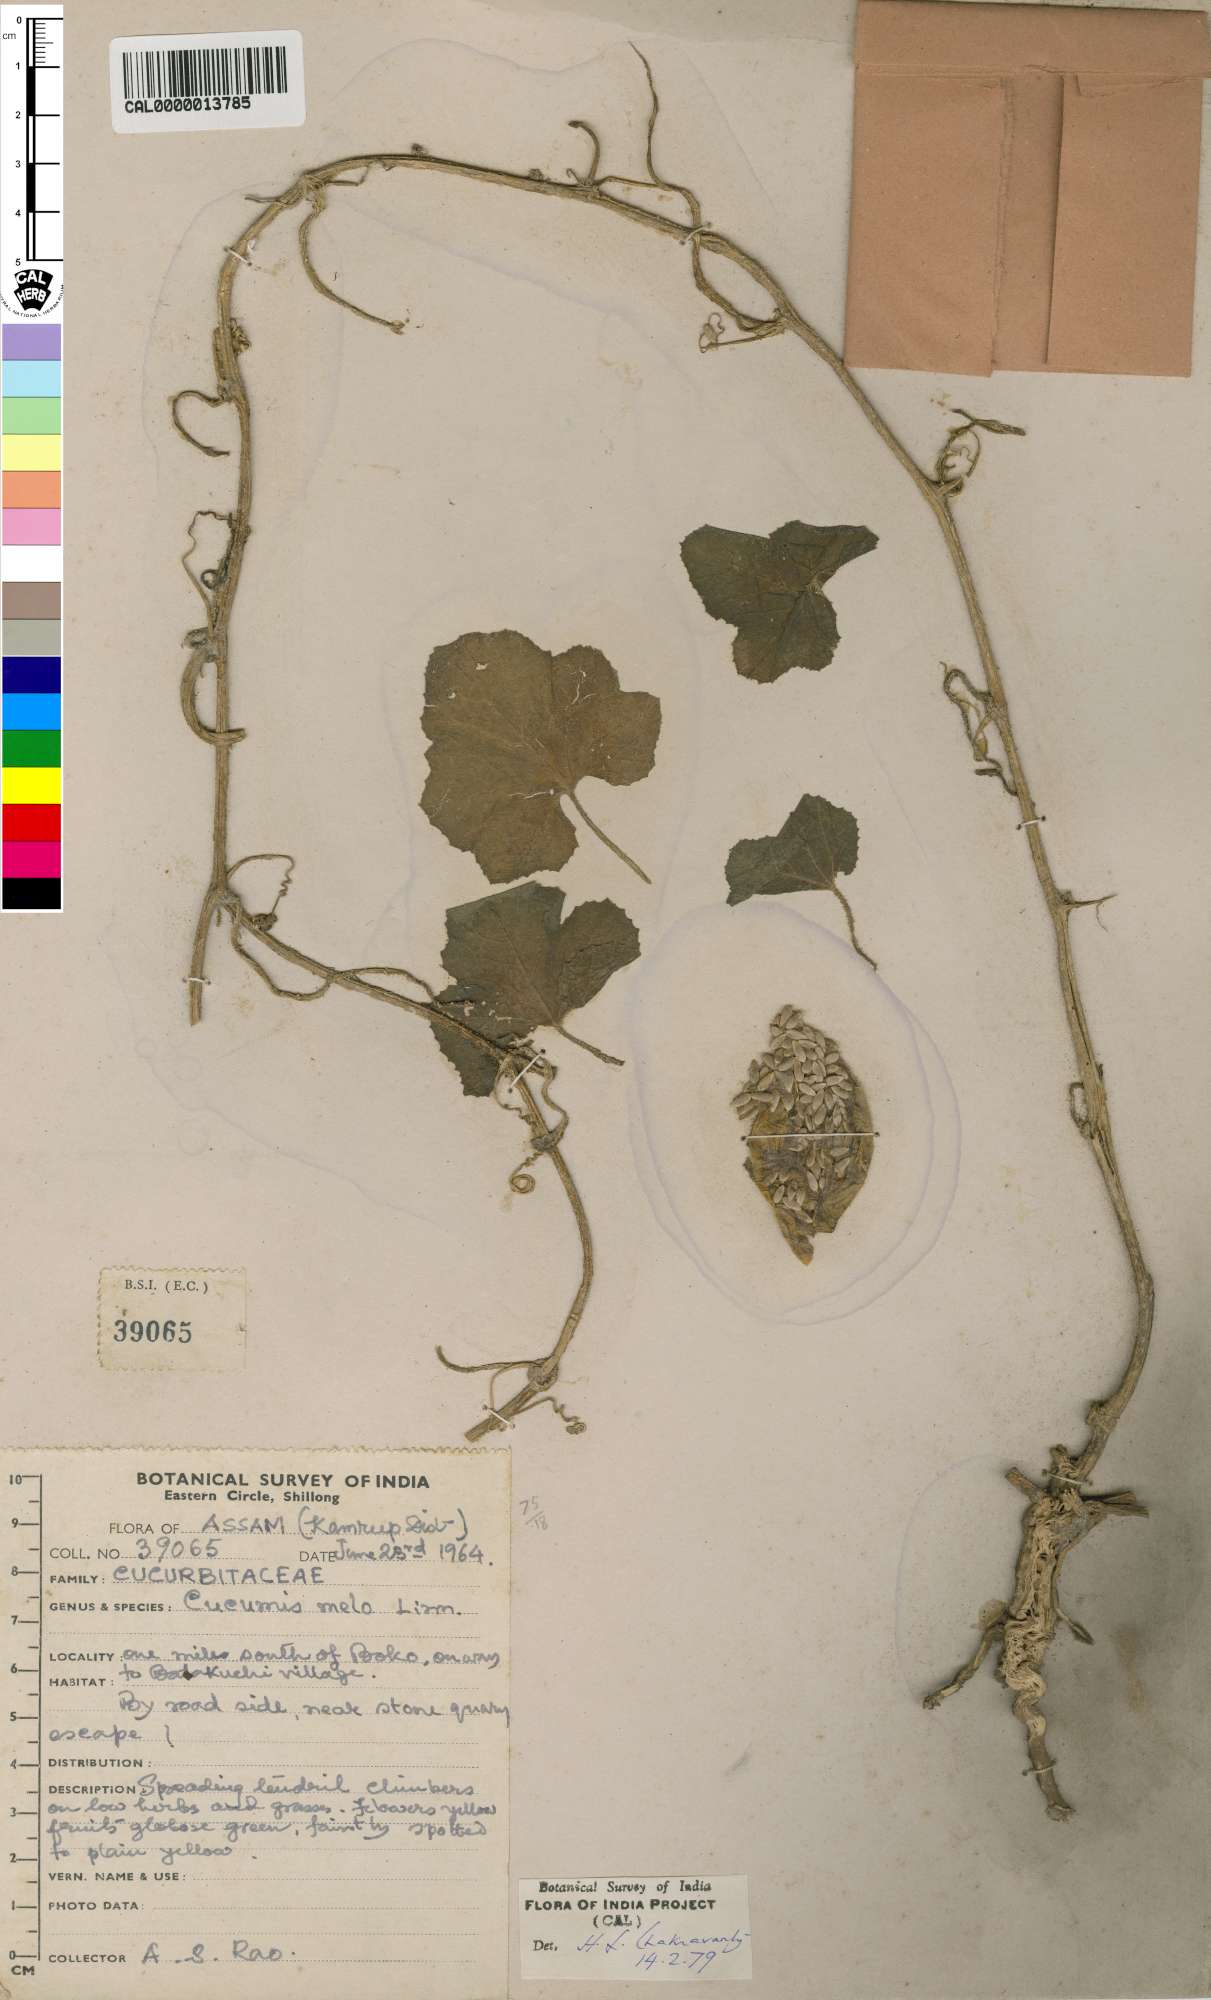 0
cm
1
2
3
4
5
CAL
HERB
CENTRAL NATIONAL HERBARIUM
CAL0000013785
B.S.I. (E.C.)
39065
BOTANICAL SURVEY OF INDIA
Eastern Circle, Shillong
FLORA OF ASSAM (Kamrup Dist)
COLL. NO 39065 DATE June 23rd 1964.
FAMILY: CUCURBITACEAE
GENUS & SPECIES: Cucumis melo Linn.
LOCALITY one miles south of Boko, on way
HABITAT: to Bakuchi village.
By road side, near stone quary
escape !
DISTRIBUTION:
DESCRIPTION: Spreading tendril climbers
on low herbs and grasses. Flowers yellow
fruits globose green, faintly spotted
to plain yellow.
VERN. NAME & USE:
PHOTO DATA:
COLLECTOR A. S. Rao.
10
9
8
7
6
5
4
3
2
1
0
CM
75/18
Botanical Survey of India
FLORA OF INDIA PROJECT
(CAL)
Det. H. L. Chakravarty
14.2.79